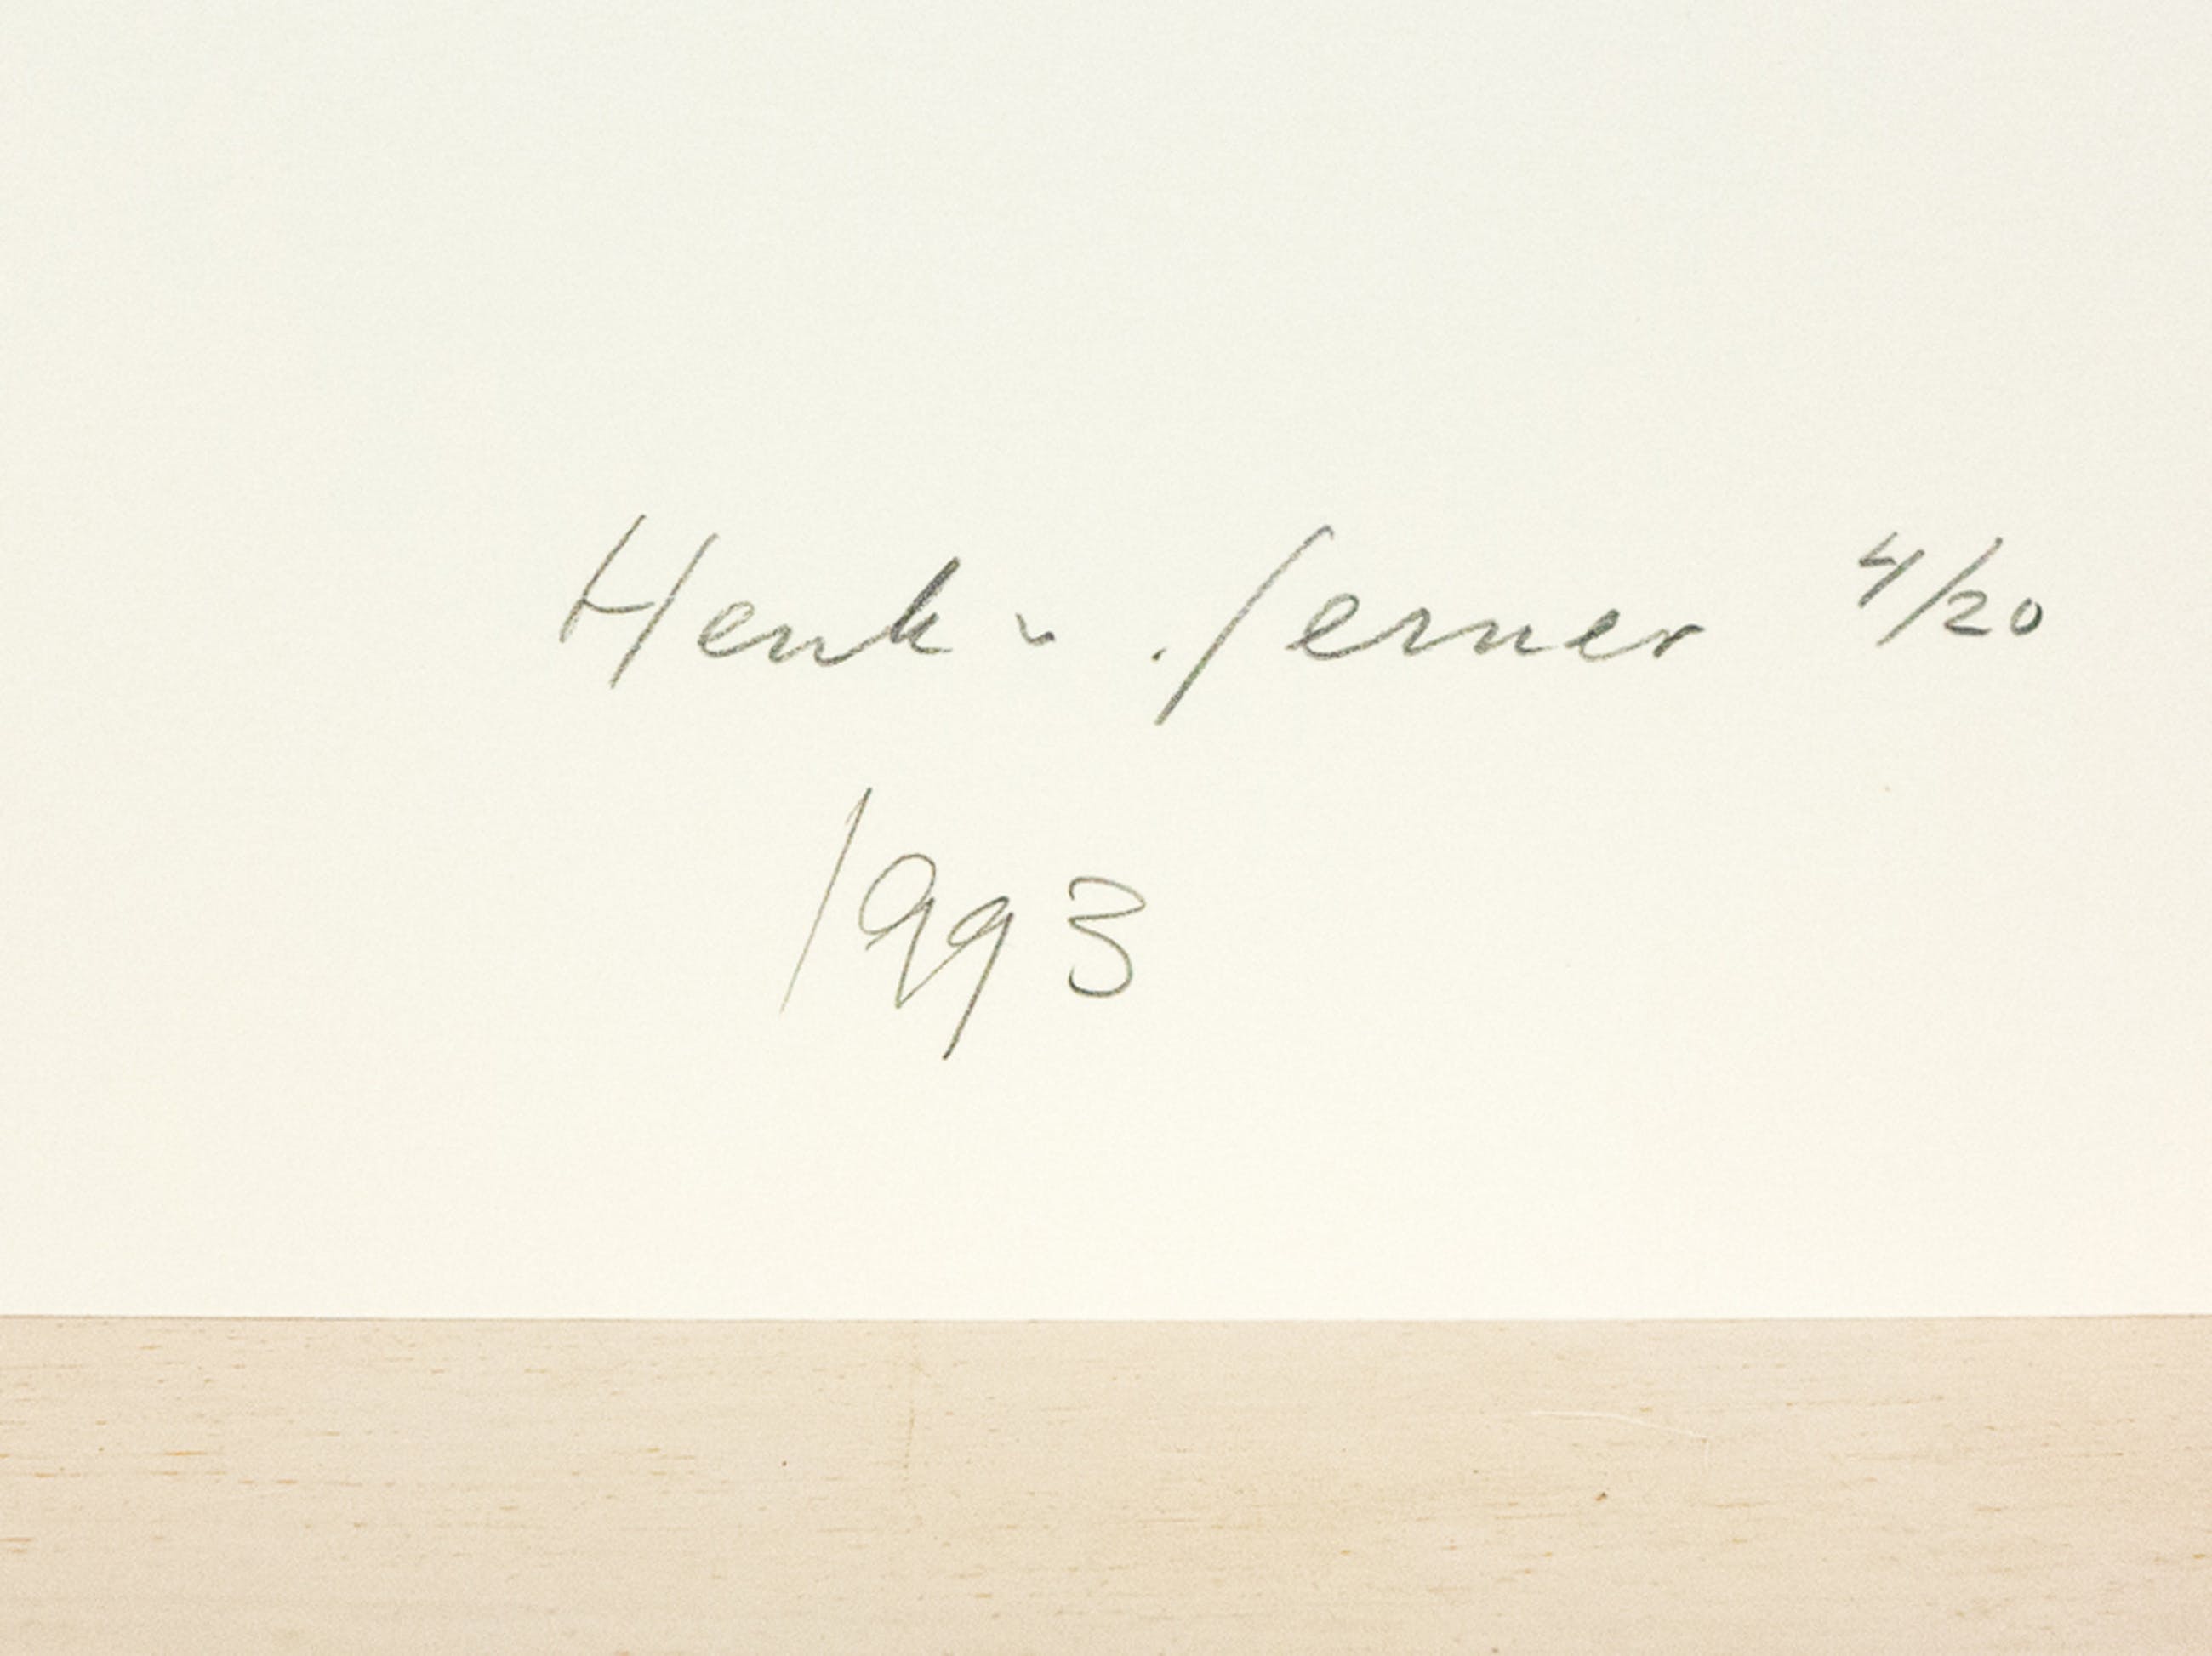 Henk v. Gerner 4/20
1993